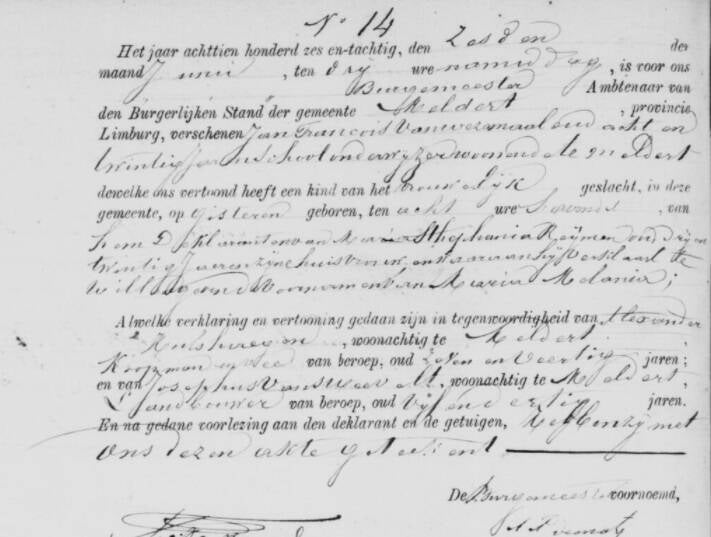 N° 14
Het jaar achttien honderd zes en-tachtig, den Zesden der
maand Junii, ten drij ure namiddag, is voor ons
Burgemeester Ambtenaar van
den Burgerlijken Stand der gemeente Meldert, provincie
Limburg, verschenen Jan Francois Vanwezemaal oud acht en
twintig jaren schoolonderwijzer woonende te Meldert
dewelke ons vertoond heeft een kind van het vrouwelijk geslacht, in deze
gemeente, op gisteren geboren, ten acht ure 's avonds, van
hem Deklarant en van Maria Sthephania Reymen oud drij en
twintig Jaaren zijne huisvrouw en waaraan hij verklaard te
willen geven de Voornamen van Maria Melania;
Alwelke verklaring en vertooning gedaan zijn in tegenwoordigheid van Alexander
, woonachtig te Meldert
Koopman in vee van beroep, oud zeven en veertig jaren;
en van Josephus, woonachtig te Meldert,
Landbouwer van beroep, oud vijf en dertig jaren.
En na gedane voorlezing aan den deklarant en de getuigen, hebben zij met
ons dezen akte geteekent
De Burgemeester voornoemd,